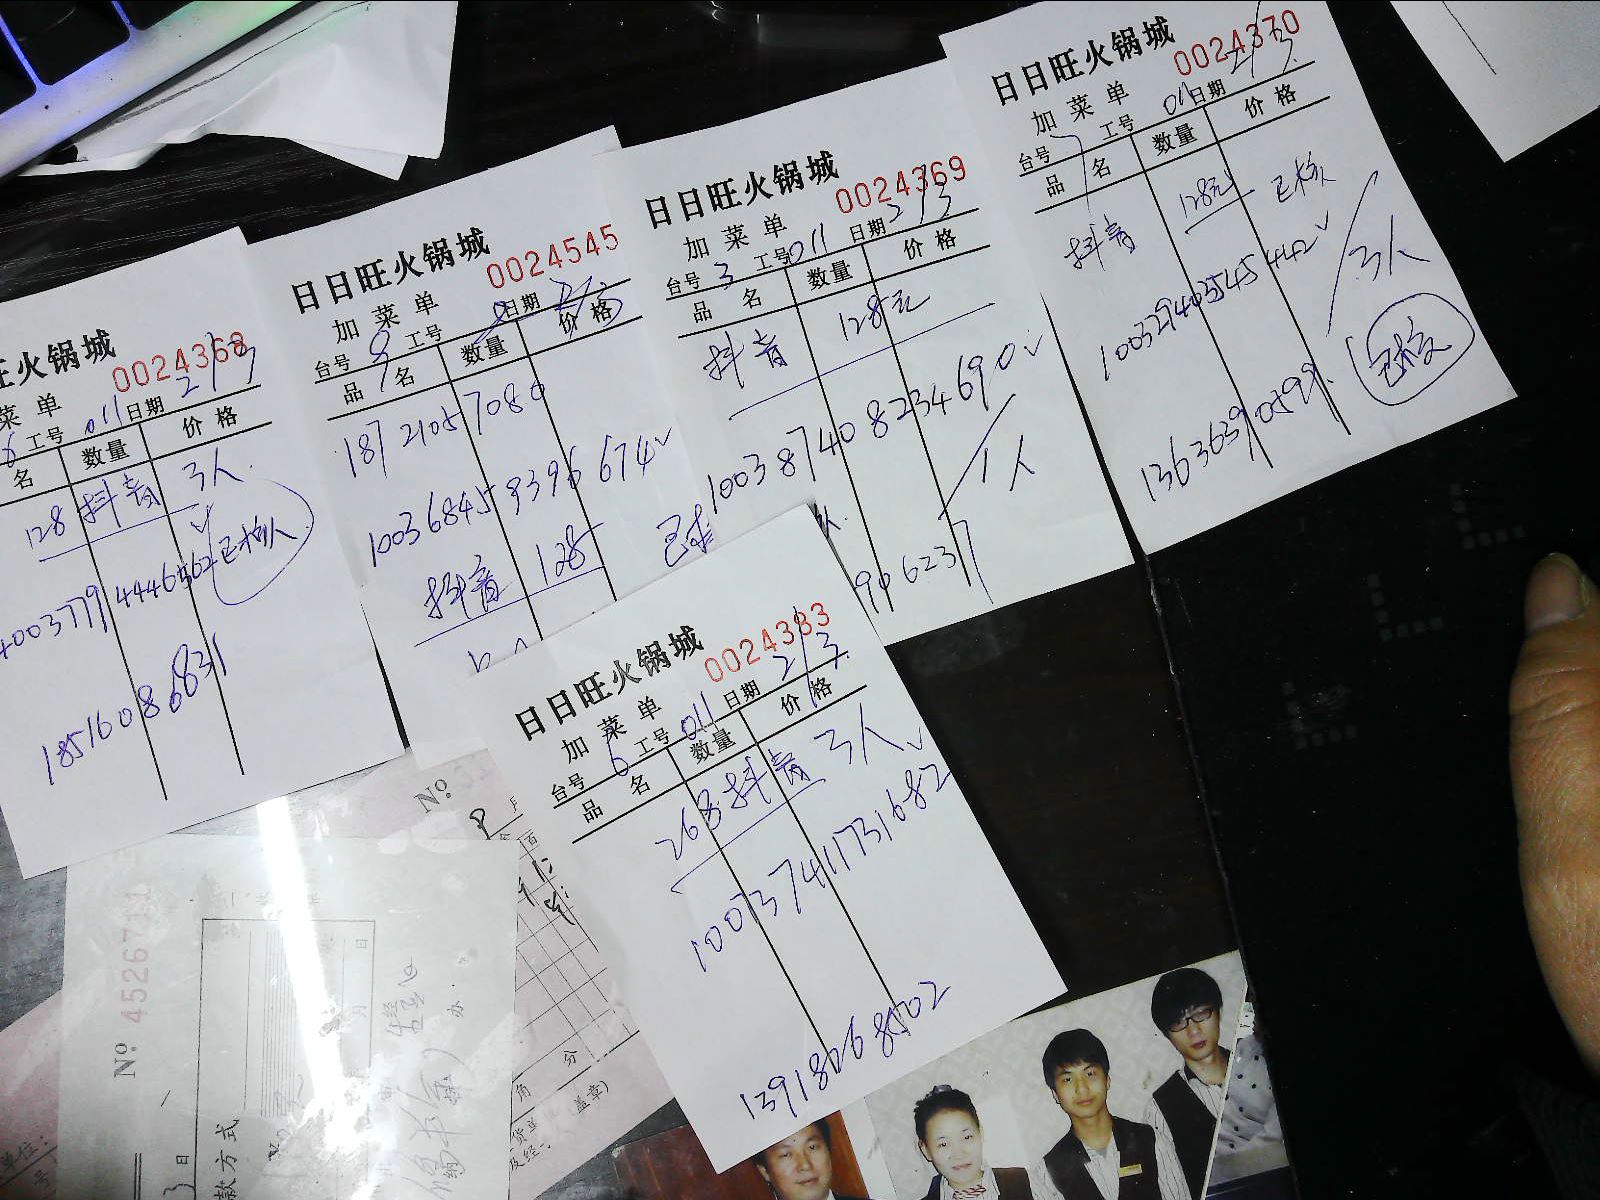 旺火锅城
0024368
菜单
工号 011 日期 2/3
名 数量 价格
128 抖音 3人
4003779 4446562 已核
18516086831
日日旺火锅城
0024545
加菜单
台号 9 工号 日期 2/3
品名 数量 价格
18721057080
1003684593966 74
抖音 128
日日旺火锅城
0024369
加菜单
台号 3 工号 011 日期 2/3
品名 数量 价格
抖音 128元
1003874082346 90
1人
已核
906237
日日旺火锅城
0024370
加菜单
台号 7 工号 011 日期 2/3
品名 数量 价格
抖音 128元 已核
1003294035454 42
3人
13636390599
已核
日日旺火锅城
0024383
加菜单
台号 6 工号 011 日期 2/3
品名 数量 价格
268 抖音 3人
10037411731682
13918068502
No. 4526711
No.
月
百
日
月
办
角 分
盖章)
货单
及经
款方式
单位:
号
日